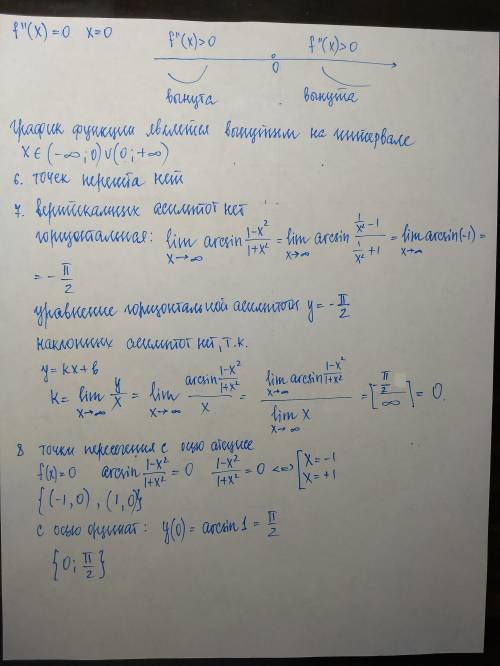 f''(x)=0 x=0 f''(x)>0 f''(x)>0
0
вогнута вогнута
График функции является вогнутым на интервале
x∈(-∞;0)∪(0;+∞)
6. точек перегиба нет
7. вертикальных асимптот нет
горизонтальная: lim x→∞ arcsin (1-x²)/(1+x²) = lim x→∞ arcsin (1/x² -1)/(1/x² +1) = lim x→∞ arcsin(-1) =
= - π/2
уравнение горизонтальной асимптоты y = - π/2
наклонных асимптот нет, т.к.
y = kx + b
k = lim x→∞ y/x = lim x→∞ (arcsin (1-x²)/(1+x²))/x = (lim x→∞ arcsin (1-x²)/(1+x²))/(lim x→∞ x) = [(-π/2)/∞] = 0.
8 точки пересечения с осью абсцисс
f(x)=0 arcsin (1-x²)/(1+x²) = 0 (1-x²)/(1+x²) = 0 <=> [x=-1 x=+1
{(-1,0), (1,0)}
с осью ординат: y(0) = arcsin 1 = π/2
{0; π/2}